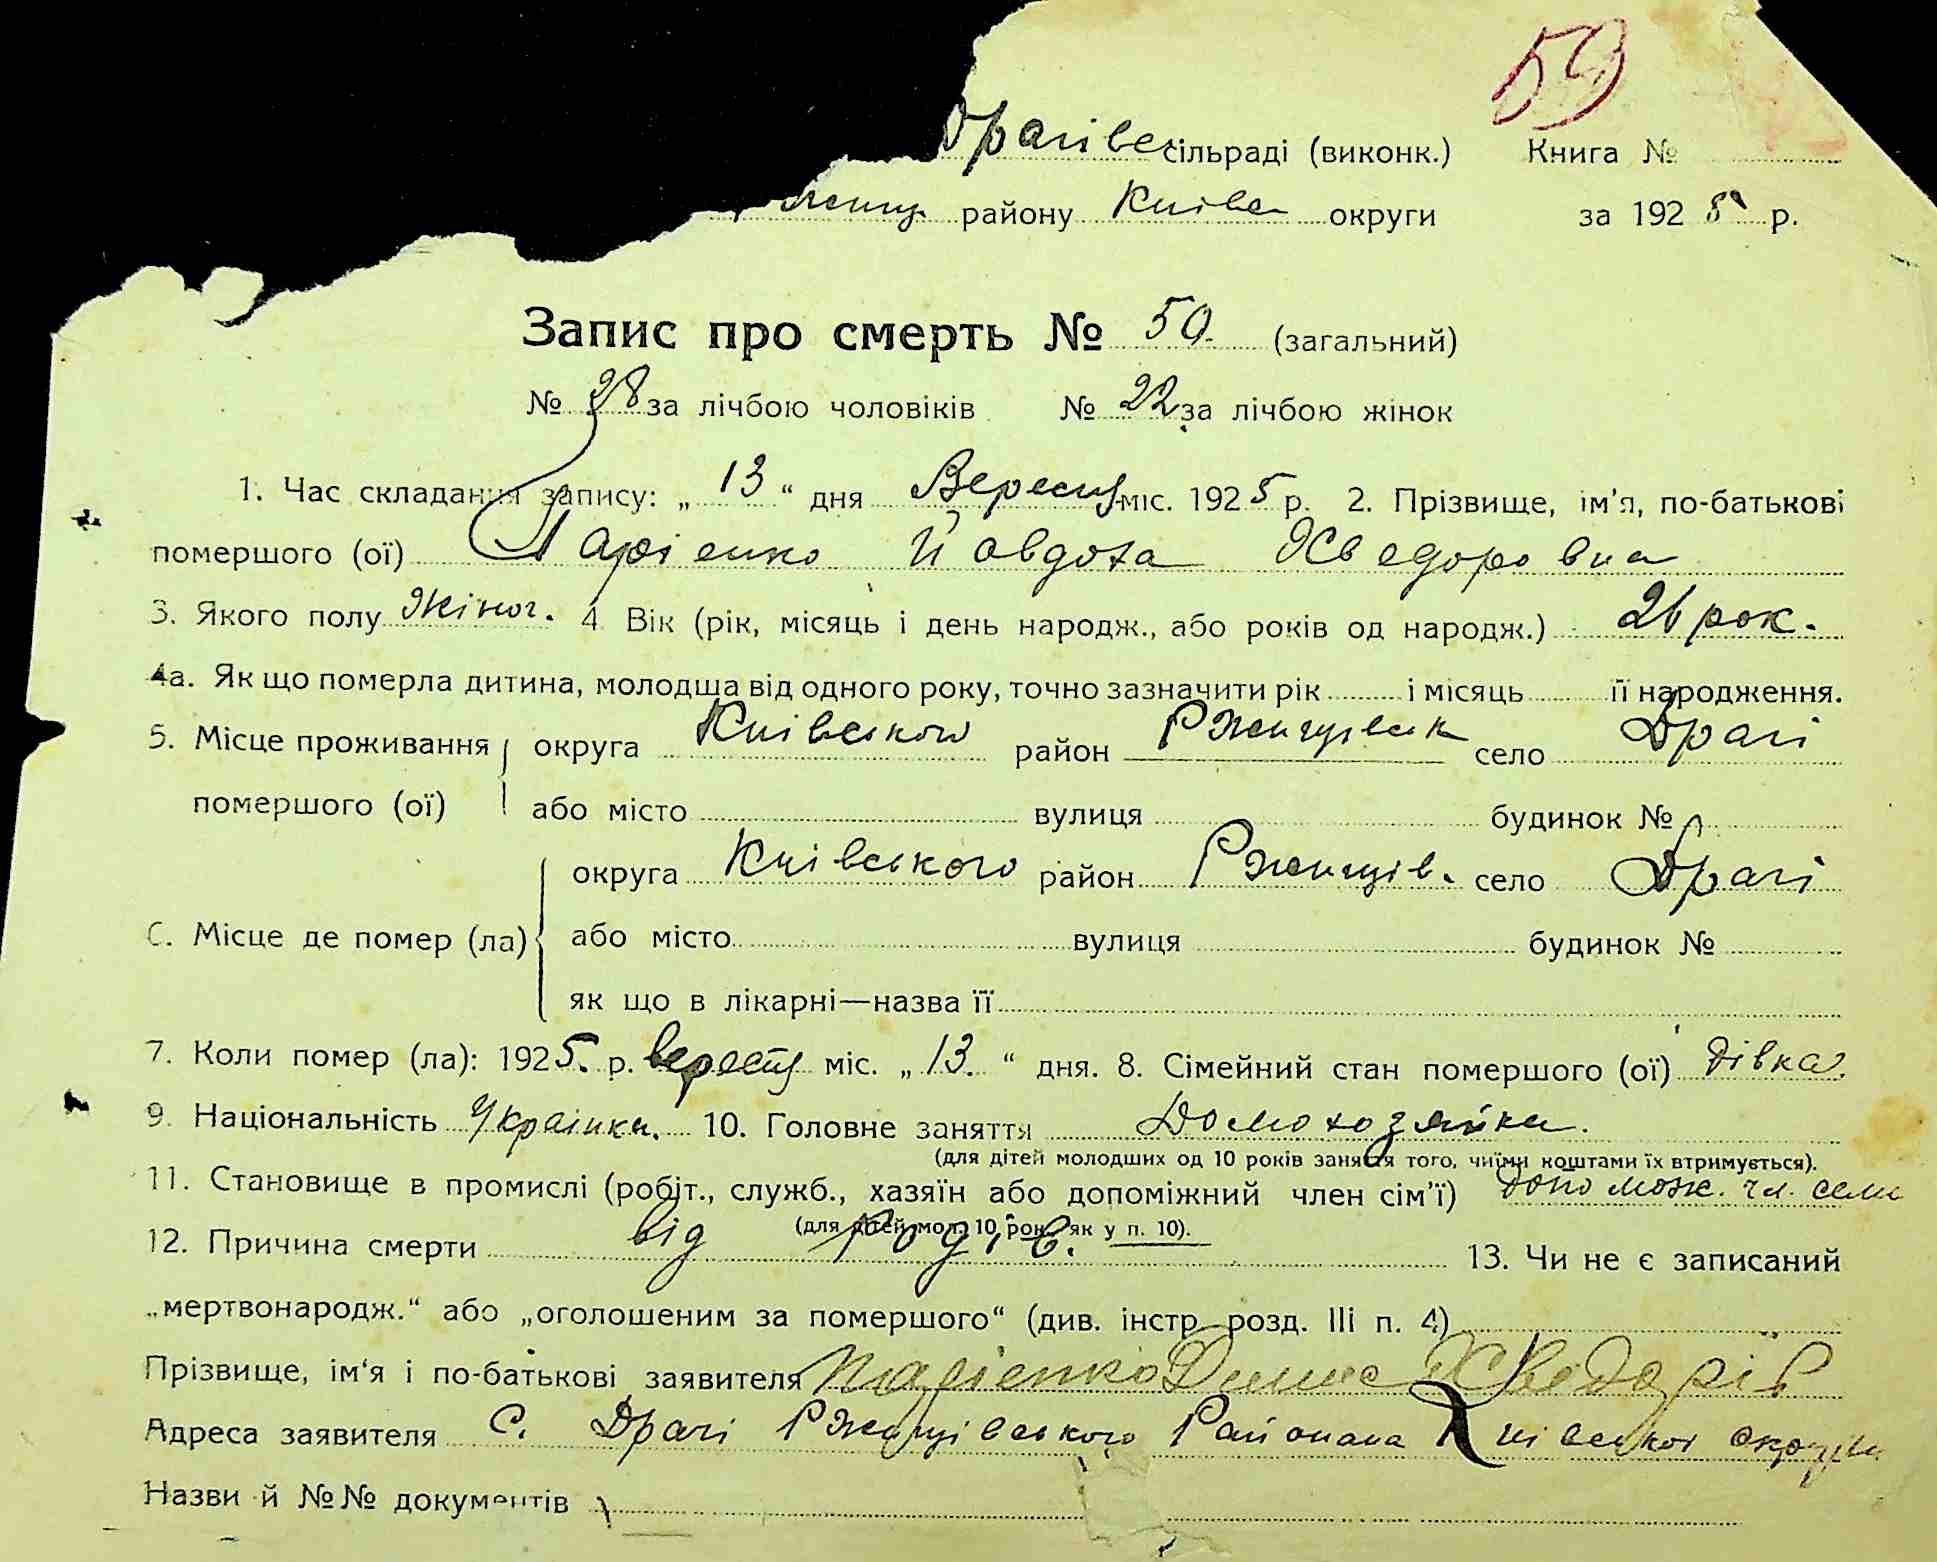 59
Драгівс сільраді (виконк.) Книга №
району Київс округи за 1925 р.
Запис про смерть № 50. (загальний)
№ 28 за лічбою чоловіків № 22 за лічбою жінок
1. Час складання запису: „ 13 “ дня Вересня міс. 1925 р. 2. Прізвище, ім'я, по-батькові
помершого (ої) Йовдоха Хведоровна
3. Якого полу Жіноч. 4 Вік (рік, місяць і день народж., або років од народж.) 26 рок.
4а. Як що померла дитина, молодша від одного року, точно зазначити рік і місяць її народження.
5. Місце проживання округа Київського район Ржищівськ село Драгі
помершого (ої) або місто вулиця будинок №
округа Київського район Ржищів. село Драгі
6. Місце де помер (ла) або місто вулиця будинок №
як що в лікарні—назва її
7. Коли помер (ла): 1925. р. вересня міс. „ 13. “ дня. 8. Сімейний стан помершого (ої) дівка.
9. Національність Українка. 10. Головне заняття Домохозяйка.
(для дітей молодших од 10 років заняття того, чиїми коштами їх втримується).
11. Становище в промислі (робіт., служб., хазяїн або допоміжний член сім'ї) допомож. чл. семи
(для дітей мол. 10 рок. як у п. 10).
12. Причина смерти від родів. 13. Чи не є записаний
„мертвонародж.“ або „оголошеним за помершого“ (див. інстр. розд. III п. 4)
Прізвище, ім'я і по-батькові заявителя Хведорів
Адреса заявителя С. Драгі Ржищівського Району Київської округи
Назви й №№ документів